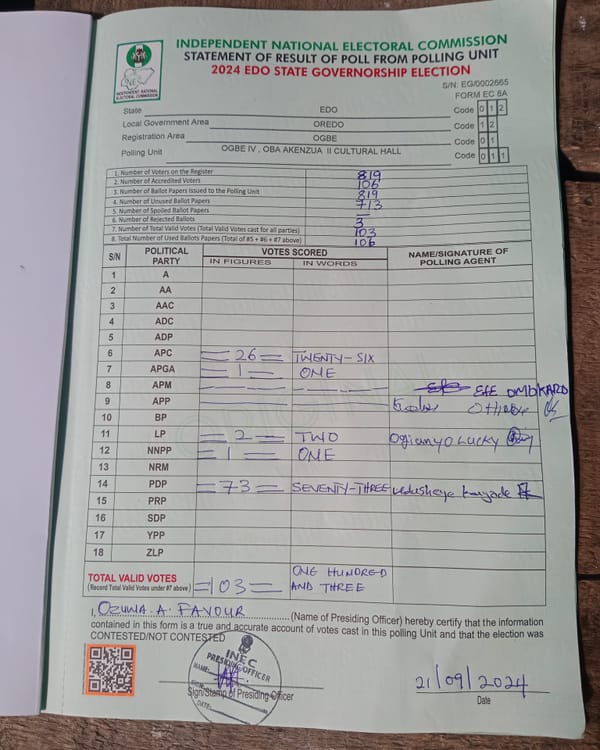 INDEPENDENT NATIONAL ELECTORAL COMMISSION
STATEMENT OF RESULT OF POLL FROM POLLING UNIT
2024 EDO STATE GOVERNORSHIP ELECTION
INDEPENDENT NATIONAL ELECTORAL COMMISSION
S/N: EG/0002665
FORM EC 8A
State EDO Code 0 1 2
Local Government Area OREDO Code 1 2
Registration Area OGBE Code 0 1
Polling Unit OGBE IV , OBA AKENZUA II CULTURAL HALL Code 0 1 1
1. Number of Voters on the Register 819
2. Number of Accredited Voters 106
3. Number of Ballot Papers Issued to the Polling Unit 819
4. Number of Unused Ballot Papers 713
5. Number of Spoiled Ballot Papers —
6. Number of Rejected Ballots 3
7. Number of Total Valid Votes (Total Valid Votes cast for all parties) 103
8. Total Number of Used Ballots Papers (Total of #5 + #6 + #7 above) 106
S/N POLITICAL PARTY VOTES SCORED NAME/SIGNATURE OF POLLING AGENT
IN FIGURES IN WORDS
1 A
2 AA
3 AAC
4 ADC
5 ADP
6 APC = 26 = TWENTY-SIX
7 APGA = 1 = ONE
8 APM EFE
9 APP
10 BP
11 LP = 2 = TWO LUCKY
12 NNPP = 1 = ONE
13 NRM
14 PDP = 73 = SEVENTY-THREE
15 PRP
16 SDP
17 YPP
18 ZLP
TOTAL VALID VOTES =103= ONE HUNDRED AND THREE
(Record Total Valid Votes under #7 above)
I, OZUWA . A . FAVOUR (Name of Presiding Officer) hereby certify that the information
contained in this form is a true and accurate account of votes cast in this polling Unit and that the election was
CONTESTED/NOT CONTESTED
INEC
PRESIDING OFFICER
NAME:
SIGN:
DATE:
Sign/Stamp of Presiding Officer
21/09/2024
Date